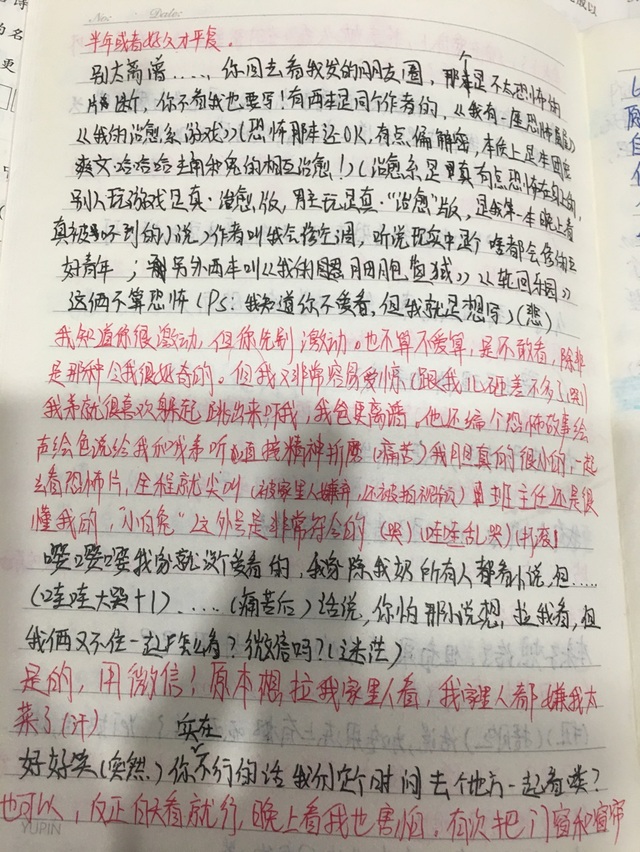 No: Date:
半年或者好久才平复。
别太离谱……,你回去看我发的朋友圈,那个本是不太恐怖的
版/进行,你不看我也要写!有两本是同个作者的,《我有一座恐怖屋》
《我的治愈系游戏》(恐怖那本还OK,有点偏解密,本质上是本团宠
爽文,哈哈哈去闹和鬼的相互治愈!)(治愈系是真有点恐怖在身上的,
别人玩游戏是真·治愈版,男主玩是真·“治愈”版,是我第一本晚上看
真被吓到的小说)作者叫我会修空调,听说现实中是个啥都会修的三
好青年;另外两本叫《我的 》《轮回乐园》
这俩不算恐怖(PS:我知道你不爱看,但我就是想写)(悲)
我知道你很激动,但你先别激动。也不算不爱算,是不敢看,除非
是那种令我很好奇的。但我又非常容易受惊(跟我 差不多了
我弟就很喜欢躲起跳出来吓我,我爸更离谱。他还编个恐怖故事绘
声绘色说给我和我弟听,直接精神折磨(痛苦)我胆真的很小的,一起
去看恐怖片,全程就尖叫(被家里人嫌弃,还被拍视频)班主任还是很
懂我的,“小白兔”这外号是非常符合的(哭)(哇哇乱哭)
嘤嘤嘤我身就没个爱看的,我身除我奶所有人都看小说,但……
(哇哇大哭+1)……(痛苦后)话说,你怕那小说想拉我看,但
我俩又不住一起 怎么看?微信吗?(迷茫)
是的,用微信!原本想拉我家里人看,我家里人都嫌我太
菜了(汗)
好好笑(突然)你实在不行的话我们定个时间去个地方一起看喽?
也可以,反正白天看就行,晚上看我也害怕。有次把门窗和窗帘
YUPIN